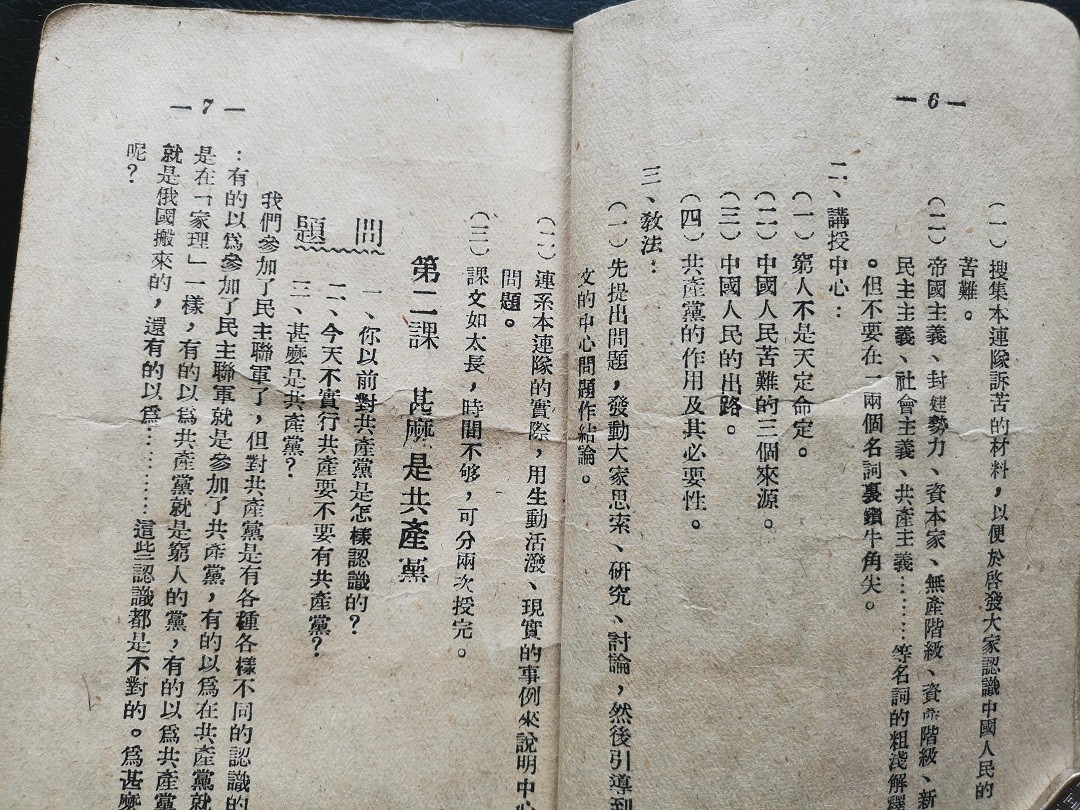 — 6 —
（一）搜集本連隊訴苦的材料，以便於啓發大家認識中國人民的
苦難。
（二）帝國主義、封建勢力、資本家、無產階級、資產階級、新
民主主義、社會主義、共產主義………等名詞的粗淺解釋
。但不要在一兩個名詞裏鑽牛角尖。
二、講授中心：
（一）窮人不是天定命定。
（二）中國人民苦難的三個來源。
（三）中國人民的出路。
（四）共產黨的作用及其必要性。
三、教法：
（一）先提出問題，發動大家思索、研究、討論，然後引導到
文的中心問題作結論。
— 7 —
（二）連系本連隊的實際，用生動活潑、現實的事例來說明中心
問題。
（三）課文如太長，時間不够，可分兩次授完。
第二課　甚麽是共產黨
問題
一、你以前對共產黨是怎樣認識的？
二、今天不實行共產要不要有共產黨？
三、甚麽是共產黨？
我們參加了民主聯軍了，但對共產黨是有各種各樣不同的認識的
：有的以爲參加了民主聯軍就是參加了共產黨，有的以爲在共產黨就
是在「家理」一樣，有的以爲共產黨就是窮人的黨，有的以爲共產黨
就是俄國搬來的，還有的以爲…………這些認識都是不對的。爲甚麽
呢？